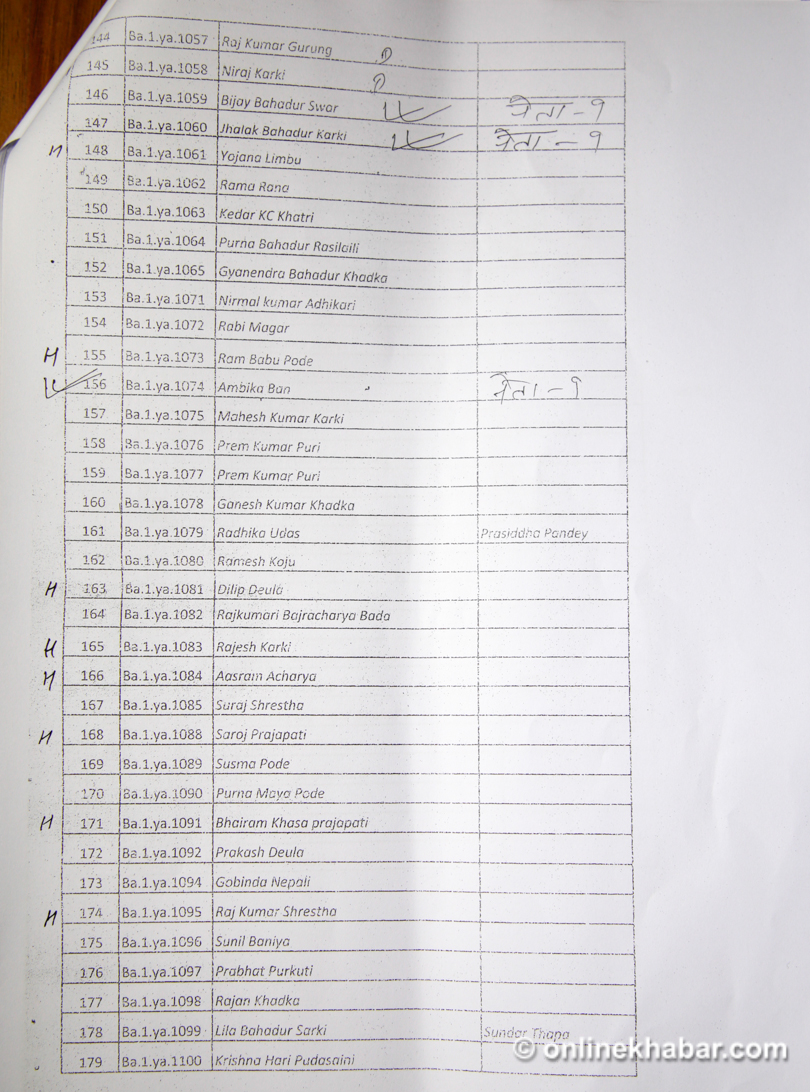 144 Ba.1.ya.1057 Raj Kumar Gurung
145 Ba.1.ya.1058 Niraj Karki
146 Ba.1.ya.1059 Bijay Bahadur Swar
147 Ba.1.ya.1060 Jhalak Bahadur Karki
148 Ba.1.ya.1061 Yojana Limbu
149 Ba.1.ya.1062 Rama Rana
150 Ba.1.ya.1063 Kedar KC Khatri
151 Ba.1.ya.1064 Purna Bahadur Rasilaili
152 Ba.1.ya.1065 Gyanendra Bahadur Khadka
153 Ba.1.ya.1071 Nirmal kumar Adhikari
154 Ba.1.ya.1072 Rabi Magar
H 155 Ba.1.ya.1073 Ram Babu Pode
156 Ba.1.ya.1074 Ambika Ban
157 Ba.1.ya.1075 Mahesh Kumar Karki
158 Ba.1.ya.1076 Prem Kumar Puri
159 Ba.1.ya.1077 Prem Kumar Puri
160 Ba.1.ya.1078 Ganesh Kumar Khadka
161 Ba.1.ya.1079 Radhika Udas Prasiddha Pandey
162 Ba.1.ya.1080 Ramesh Koju
H 163 Ba.1.ya.1081 Dilip Deula
164 Ba.1.ya.1082 Rajkumari Bajracharya Bada
H 165 Ba.1.ya.1083 Rajesh Karki
H 166 Ba.1.ya.1084 Aasram Acharya
167 Ba.1.ya.1085 Suraj Shrestha
H 168 Ba.1.ya.1088 Saroj Prajapati
169 Ba.1.ya.1089 Susma Pode
170 Ba.1.ya.1090 Purna Maya Pode
H 171 Ba.1.ya.1091 Bhairam Khasa prajapati
172 Ba.1.ya.1092 Prakash Deula
173 Ba.1.ya.1094 Gobinda Nepali
H 174 Ba.1.ya.1095 Raj Kumar Shrestha
175 Ba.1.ya.1096 Sunil Baniya
176 Ba.1.ya.1097 Prabhat Purkuti
177 Ba.1.ya.1098 Rajan Khadka
178 Ba.1.ya.1099 Lila Bahadur Sarki Sundar Thapa
179 Ba.1.ya.1100 Krishna Hari Pudasaini
© onlinekhabar.com